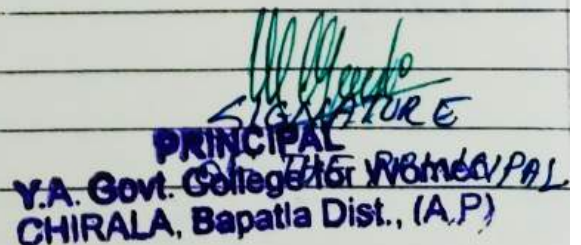 SIGNATURE
PRINCIPAL
OF THE PRINCIPAL
Y.A. Govt. College for Women
CHIRALA, Bapatla Dist., (A.P)